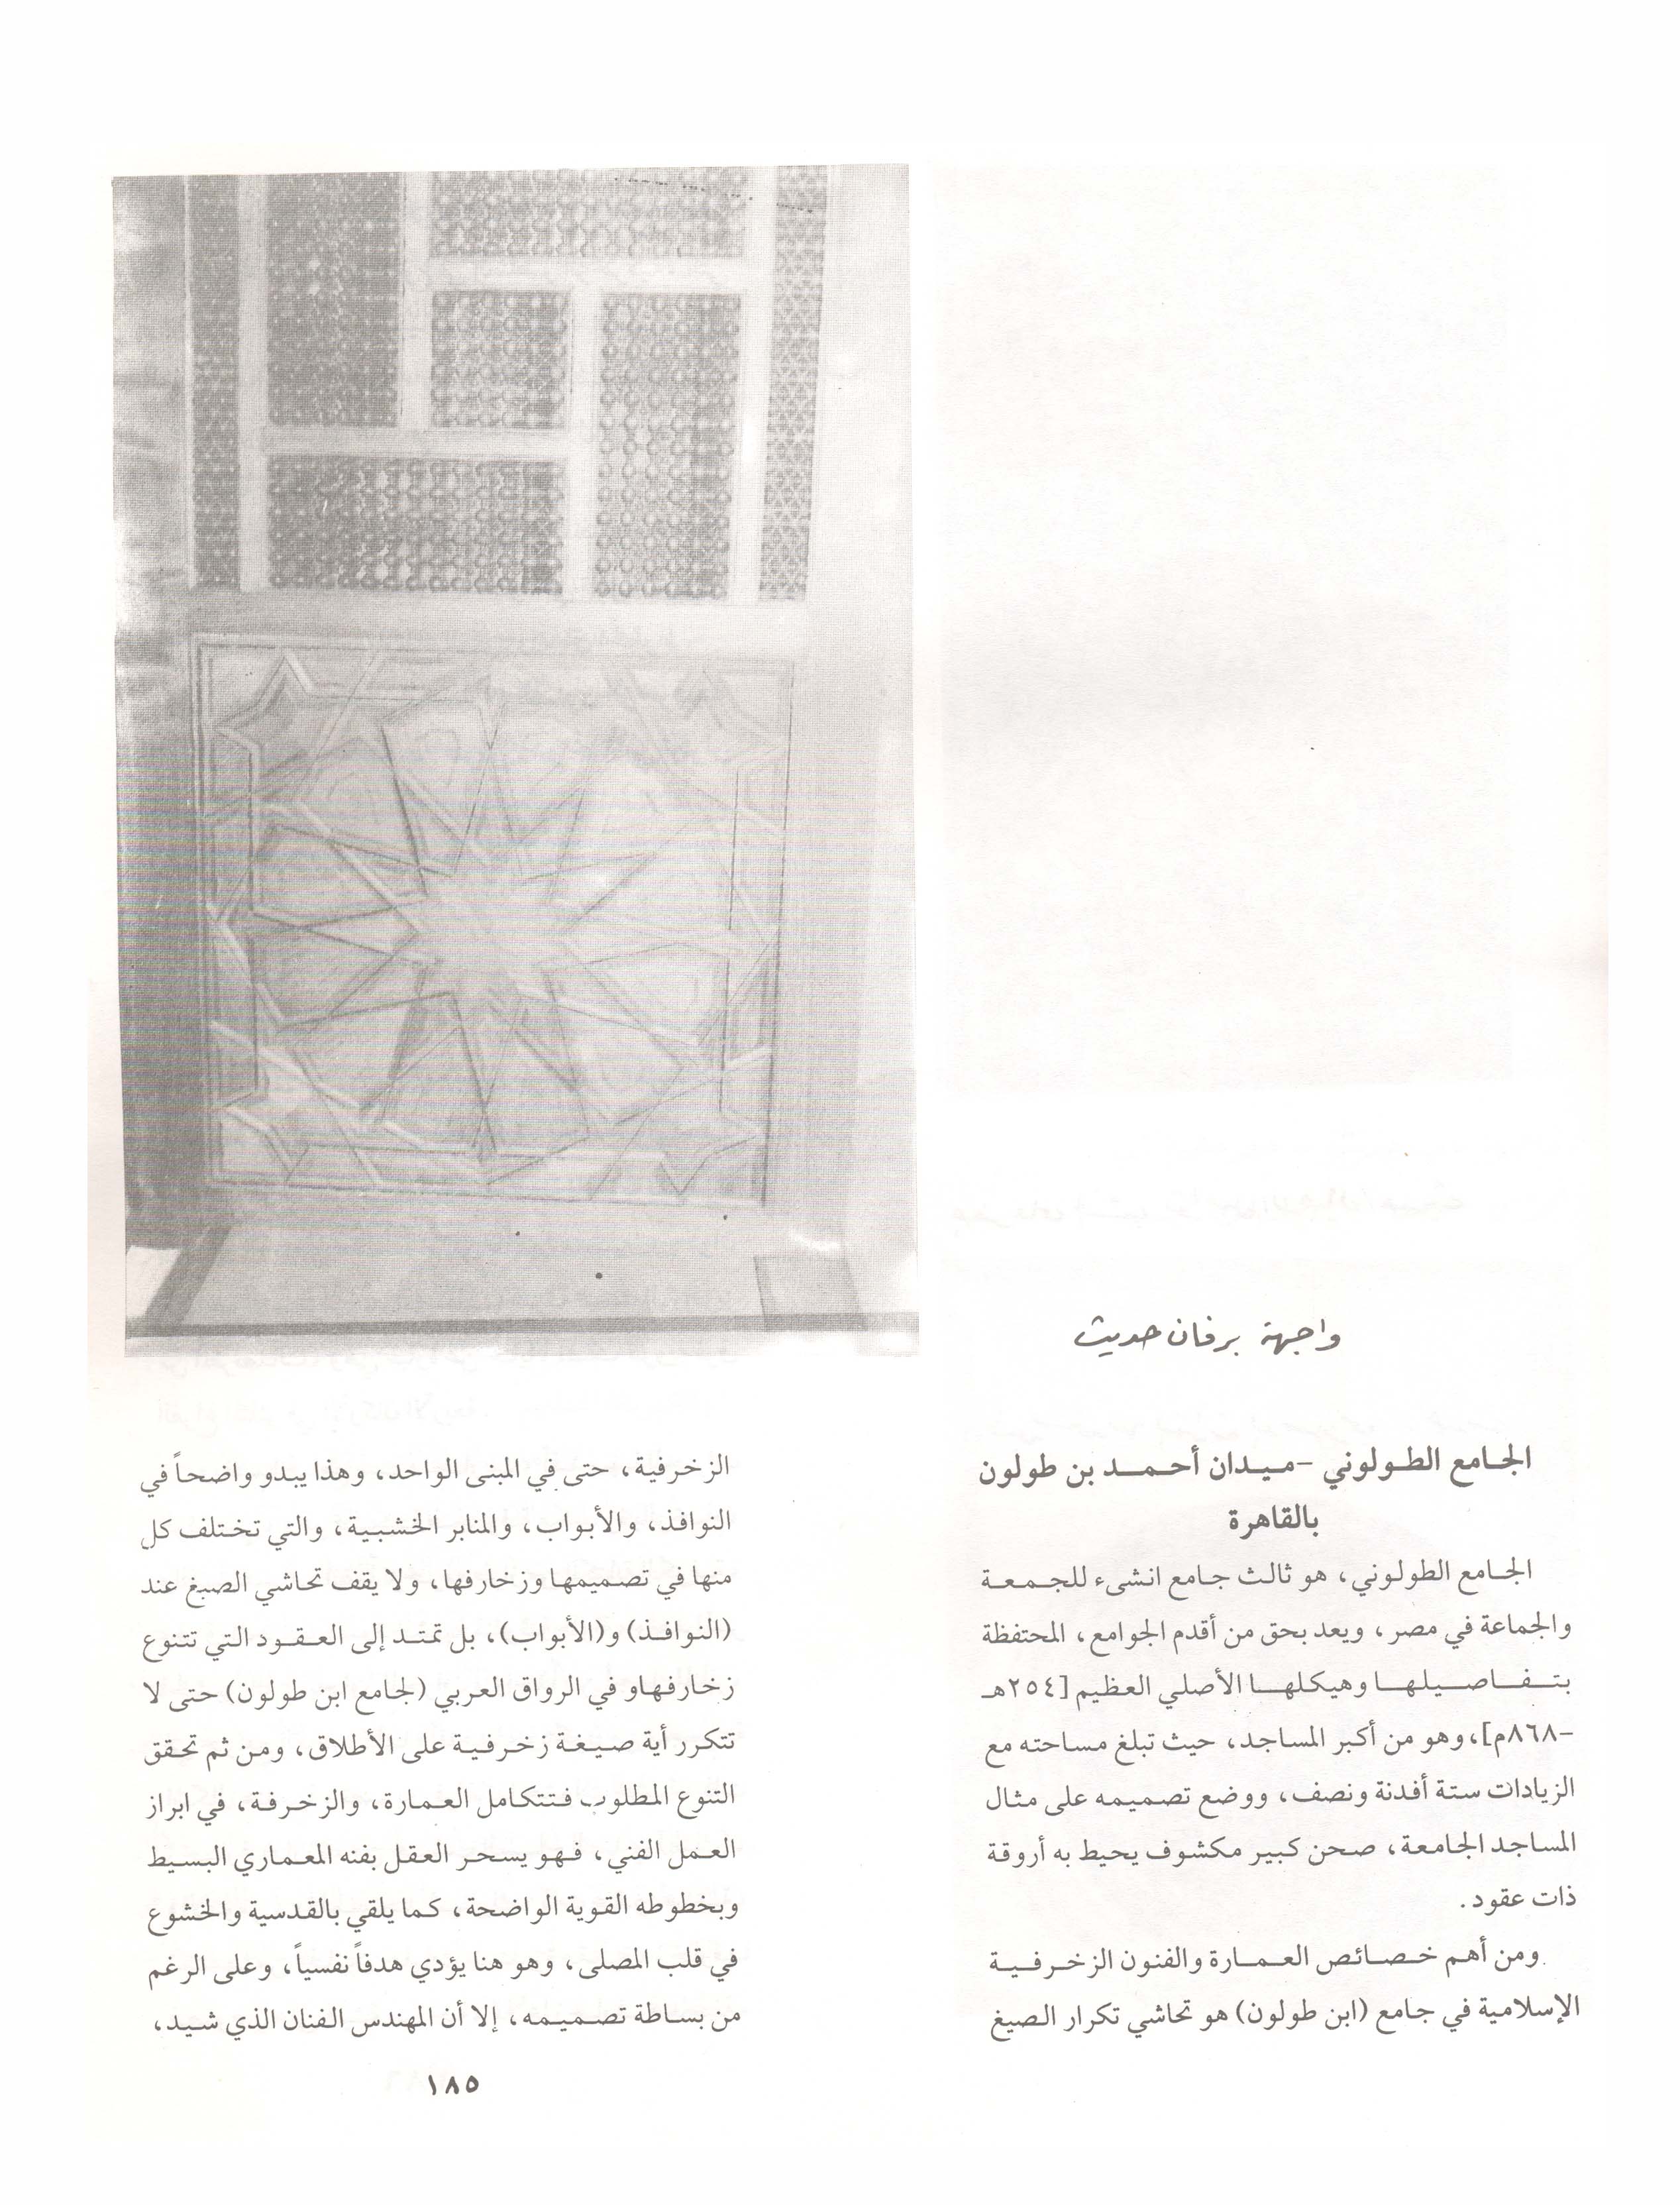 واجهة برفان حديث
الجامع الطولوني -ميدان أحمد بن طولون
بالقاهرة
الجامع الطولوني، هو ثالث جامع انشىء للجمعة
والجماعة في مصر، ويعد بحق من أقدم الجوامع، المحتفظة
بتفاصيلها وهيكلها الأصلي العظيم [٢٥٤هـ
-٨٦٨م]، وهو من أكبر المساجد، حيث تبلغ مساحته مع
الزيادات ستة أفدنة ونصف، ووضع تصميمه على مثال
المساجد الجامعة، صحن كبير مكشوف يحيط به أروقة
ذات عقود.
ومن أهم خصائص العمارة والفنون الزخرفية
الإسلامية في جامع (ابن طولون) هو تحاشي تكرار الصيغ
الزخرفية، حتى في المبنى الواحد، وهذا يبدو واضحاً في
النوافذ، والأبواب، والمنابر الخشبية، والتي تختلف كل
منها في تصميمها وزخارفها، ولا يقف تحاشي الصبغ عند
(النوافذ) و(الأبواب)، بل تمتد إلى العقود التي تتنوع
زخارفهاو في الرواق العربي (لجامع ابن طولون) حتى لا
تتكرر أية صيغة زخرفية على الأطلاق، ومن ثم تحقق
التنوع المطلوب فتتكامل العمارة، والزخرفة، في ابراز
العمل الفني، فهو يسحر العقل بفنه المعماري البسيط
وبخطوطه القوية الواضحة، كما يلقي بالقدسية والخشوع
في قلب المصلى، وهو هنا يؤدي هدفاً نفسياً، وعلى الرغم
من بساطة تصميمه، إلا أن المهندس الفنان الذي شيد،
١٨٥